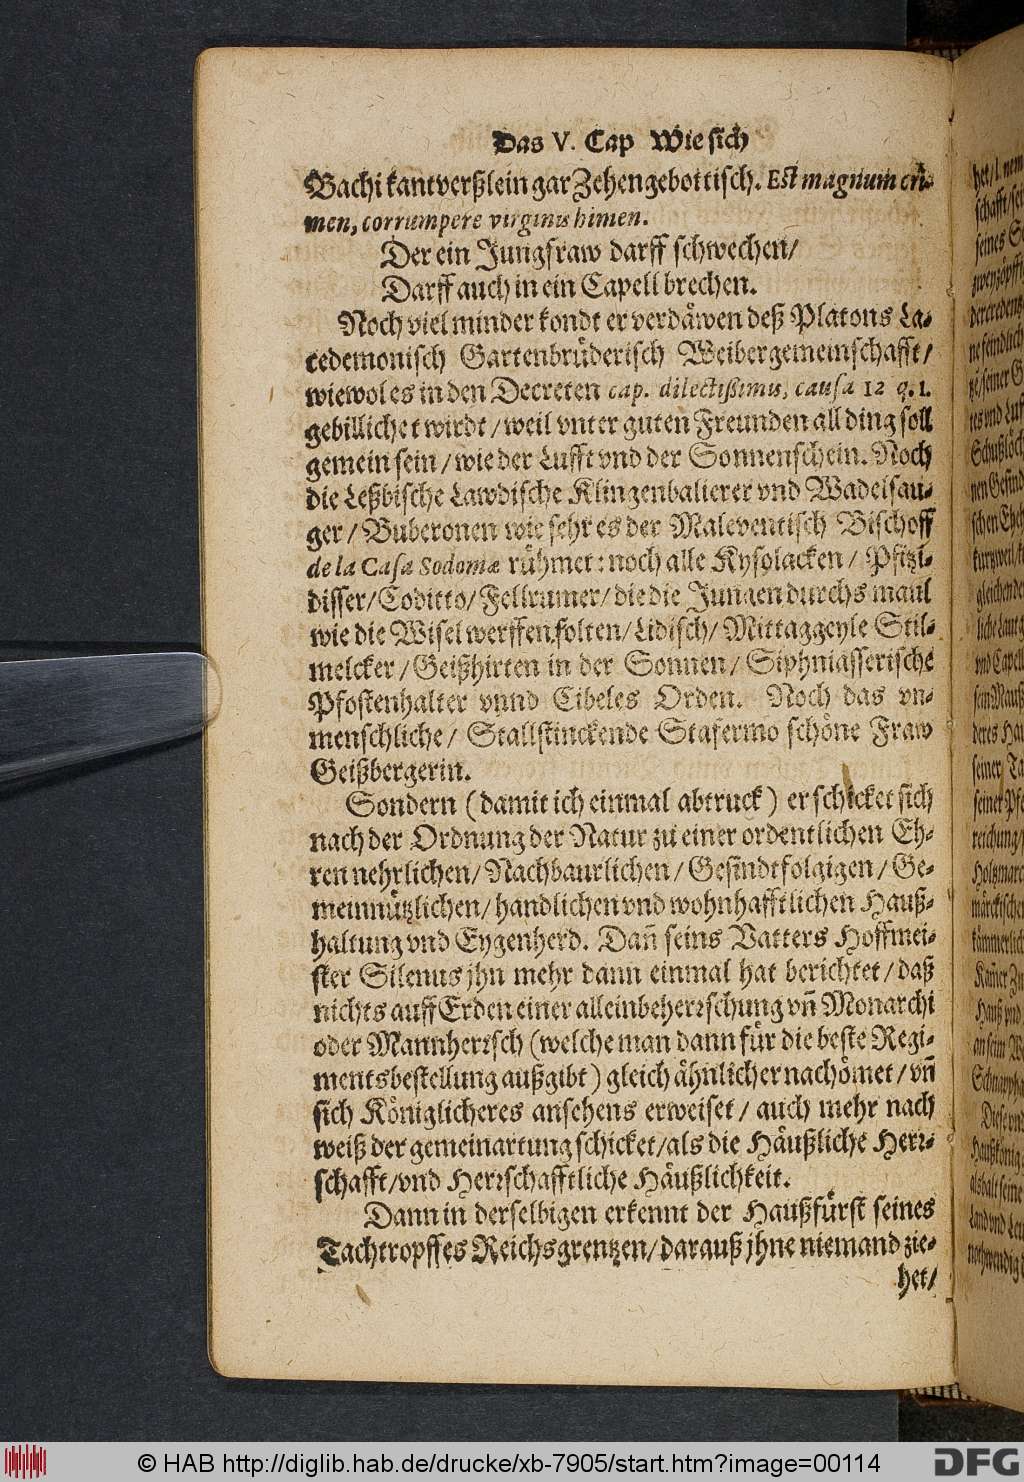 Das V. Cap Wie sich
Bachi kantverßlein gar Zehengebottisch. Est magnum cri-
men, corrumpere virginis himen.
Der ein Jungfraw darff schwechen/
Darff auch in ein Capell brechen.
Noch viel minder kondt er verdåwen deß Platons La-
cedemonisch Gartenbrüderisch Weibergemeinschafft/
wiewol es in den Decreten cap. dilectißimis, causa 12 q. 1.
gebillichet wirdt/ weil vnter guten Freunden all ding soll
gemein sein/ wie der Lufft vnd der Sonnenschein. Noch
die Leßbische Lawdische Klingenbalierer vnd Wadelsau-
ger/ Buberonen wie sehr es der Maleventisch Bischoff
de la Casa Sodomæ rühmet: noch alle Kysolacken/ Pfitzi-
disser/ Coditto/ Fellrumer/ die die Jungen durchs maul
wie die Wisel werffen solten/ Lidisch/ Mittaggeyle Stil-
melcker/ Geißhirten in der Sonnen/ Siphniasserische
Pfostenhalter vnnd Cibeles Orden. Noch das vn-
menschliche/ Stallstinckende Stafermo schöne Fraw
Geißbergerin.
Sondern (damit ich einmal abtruck) er schicket sich
nach der Ordnung der Natur zu einer ordentlichen Eh-
ren nehrlichen/ Nachbaurlichen/ Gesindtfolgigen/ Ge-
meinnützlichen/ handlichen vnd wohnhafftlichen Hauß-
haltung vnd Eygenherd. Dañ seins Vatters Hoffmei-
ster Silenus jhn mehr dann einmal hat berichtet/ daß
nichts auff Erden einer alleinbeherrschung vñ Monarchi
oder Mannherrsch (welche man dann für die beste Regi-
mentsbestellung außgibt) gleich åhnlicher nachömet/ vñ
sich Königlicheres ansehens erweiset/ auch mehr nach
weiß der gemeinartung schicket/ als die Häußliche Herr-
schafft/ vnd Herrschafftliche Häußlichkeit.
Dann in derselbigen erkennt der Haußfürst seines
Tachtropffes Reichsgrentzen/ darauß jhne niemand zie-
het/
© HAB http://diglib.hab.de/drucke/xb-7905/start.htm?image=00114
DFG